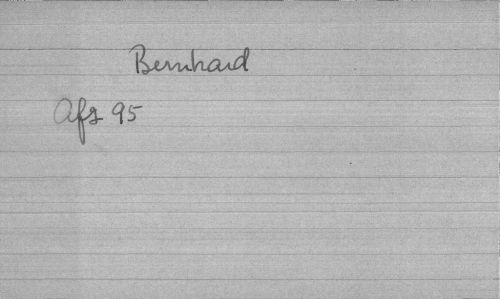 Bernhard
Afz 95